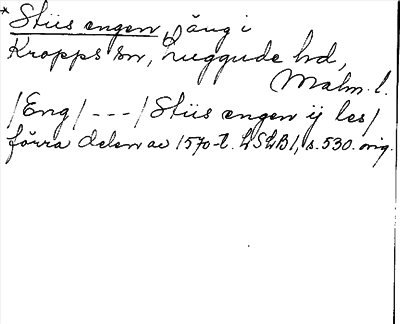 * Stiis engen, äng i
Kropps sn, Luggude hd,
Malm. l.
/Eng/ --- / Stiis engen ij les/
förra delen av 1570-t. LSLB1, s. 530. orig.